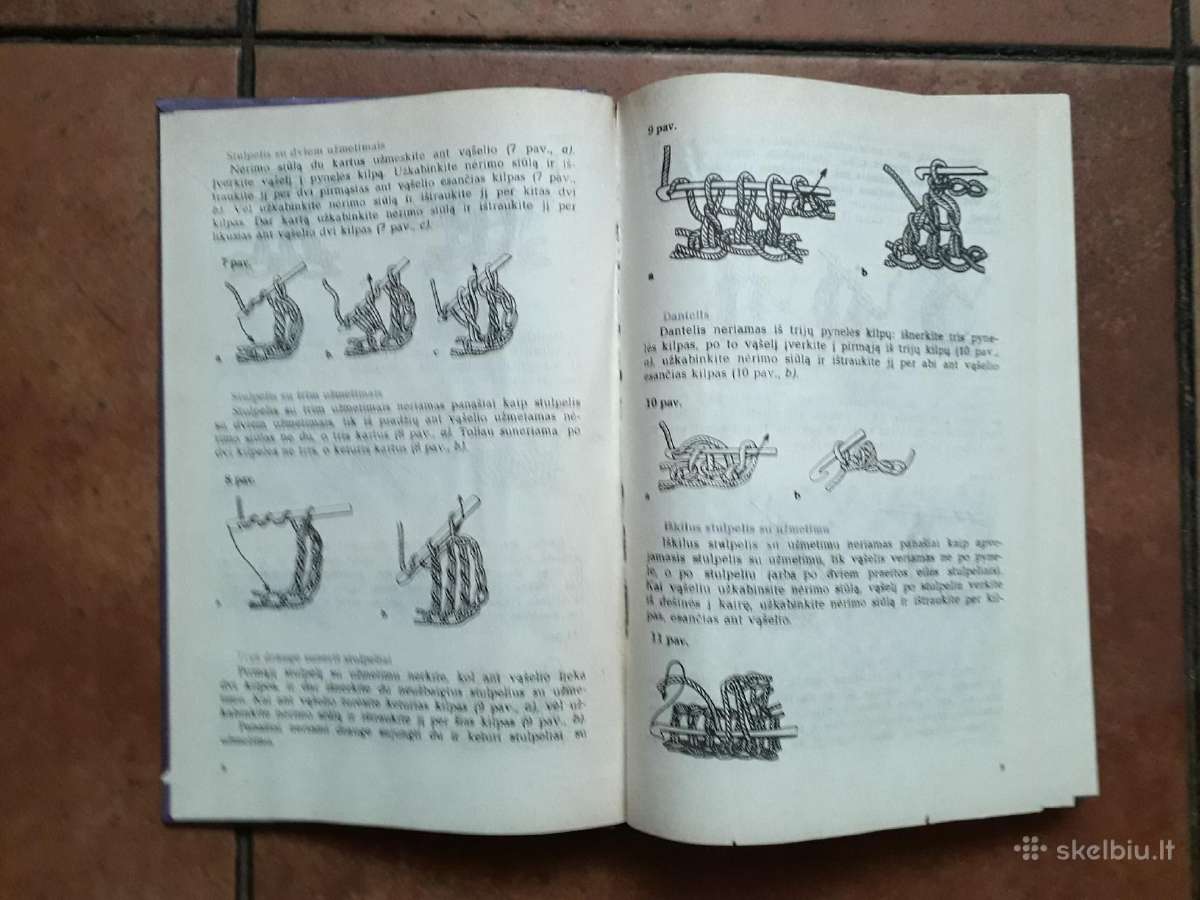 Stulpelis su dviem užmetimais
Nėrimo siūlą du kartus užmeskite ant vąšelio (7 pav., a).
Įverkite vąšelį į pynelės kilpą. Užkabinkite nėrimo siūlą ir iš-
traukite jį per dvi pirmąsias ant vąšelio esančias kilpas (7 pav.,
b). Vėl užkabinkite nėrimo siūlą ir ištraukite jį per kitas dvi
kilpas. Dar kartą užkabinkite nėrimo siūlą ir ištraukite jį per
likusias ant vąšelio dvi kilpas (7 pav., c).
7 pav.
a
b
c
Stulpelis su trim užmetimais
Stulpelis su trim užmetimais neriamas panašiai kaip stulpelis
su dviem užmetimais, tik iš pradžių ant vąšelio užmetamas nė-
rimo siūlas ne du, o tris kartus (8 pav., a). Toliau suneriama po
dvi kilpeles ne tris, o keturis kartus (8 pav., b).
8 pav.
b
drauge sunerti stulpeliai
Pirmąjį stulpelį su užmetimu nerkite, kol ant vąšelio lieka
dvi kilpos, ir dar išnerkite du neužbaigtus stulpelius su užme-
timu. Kai ant vąšelio turėsite keturias kilpas (9 pav., a), vėl už-
kabinkite nėrimo siūlą ir ištraukite jį per šias kilpas (9 pav., b).
Panašiai neriami drauge sujungti du ir keturi stulpeliai su
užmetimu.
8
9 pav.
a
b
Dantelis
Dantelis neriamas iš trijų pynelės kilpų: išnerkite tris pyne-
lės kilpas, po to vąšelį įverkite į pirmąją iš trijų kilpų (10 pav.,
a), užkabinkite nėrimo siūlą ir ištraukite jį per abi ant vąšelio
esančias kilpas (10 pav., b).
10 pav.
a
b
Iškilus stulpelis su užmetimu
Iškilus stulpelis su užmetimu neriamas panašiai kaip apve-
jamasis stulpelis su užmetimu, tik vąšelis veriamas ne po pyne-
le, o po stulpeliu (arba po dviem praeitos eilės stulpeliais).
Kai vąšeliu užkabinsite nėrimo siūlą, vąšelį po stulpeliu verkite
iš dešinės į kairę, užkabinkite nėrimo siūlą ir ištraukite per kil-
pas, esančias ant vąšelio.
11 pav.
9
skelbiu.lt